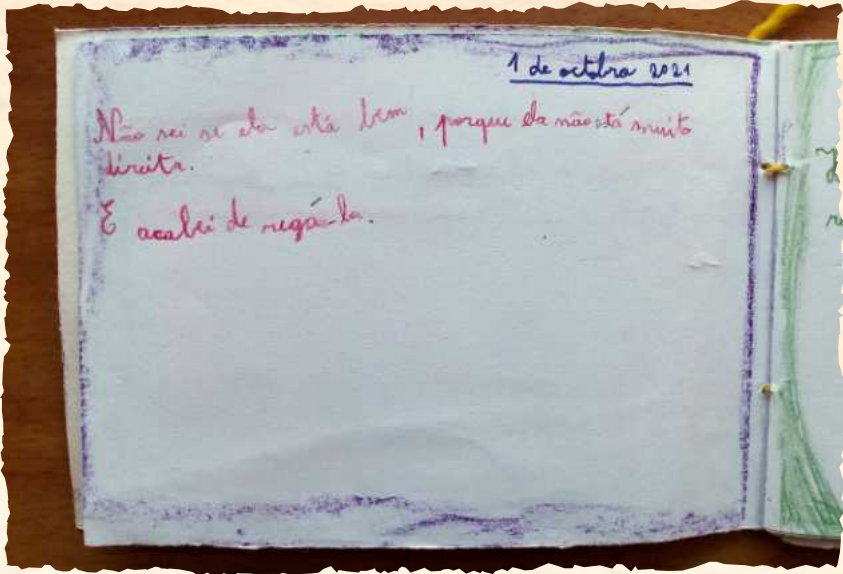 1 de octobro 2021
Não sei se ela está bem, porque ela não stá muito
direita.
E acabei de regá-la.